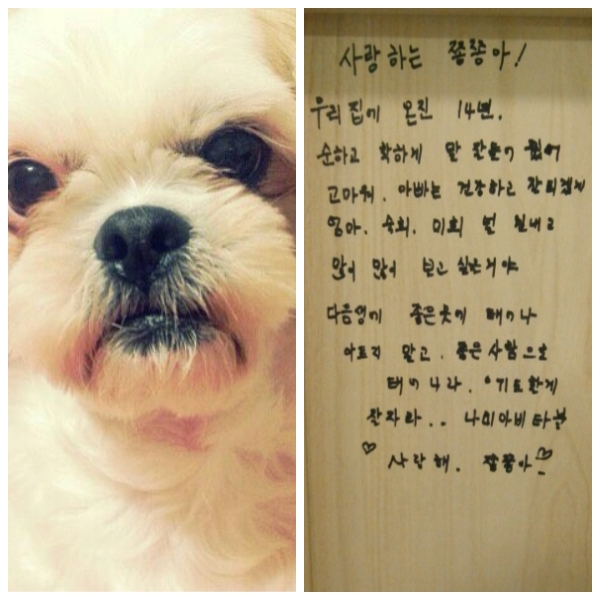 사랑하는 쫑쫑아!
우리집에 온진 14년.
순하고 착하게 말 잘들어 줬어
고마워. 아빠는 건강하고 잘되겠지
엄마. 숙희. 미희 널 보내고
많이 많이 보고 싶은거야
다음엔 좋은곳에 태어나
아프지 말고. 좋은사람으로
태어나라. 기도할게
잘자라.. 나미아비타불
♡ 사랑해. 쫑쫑아 ♡